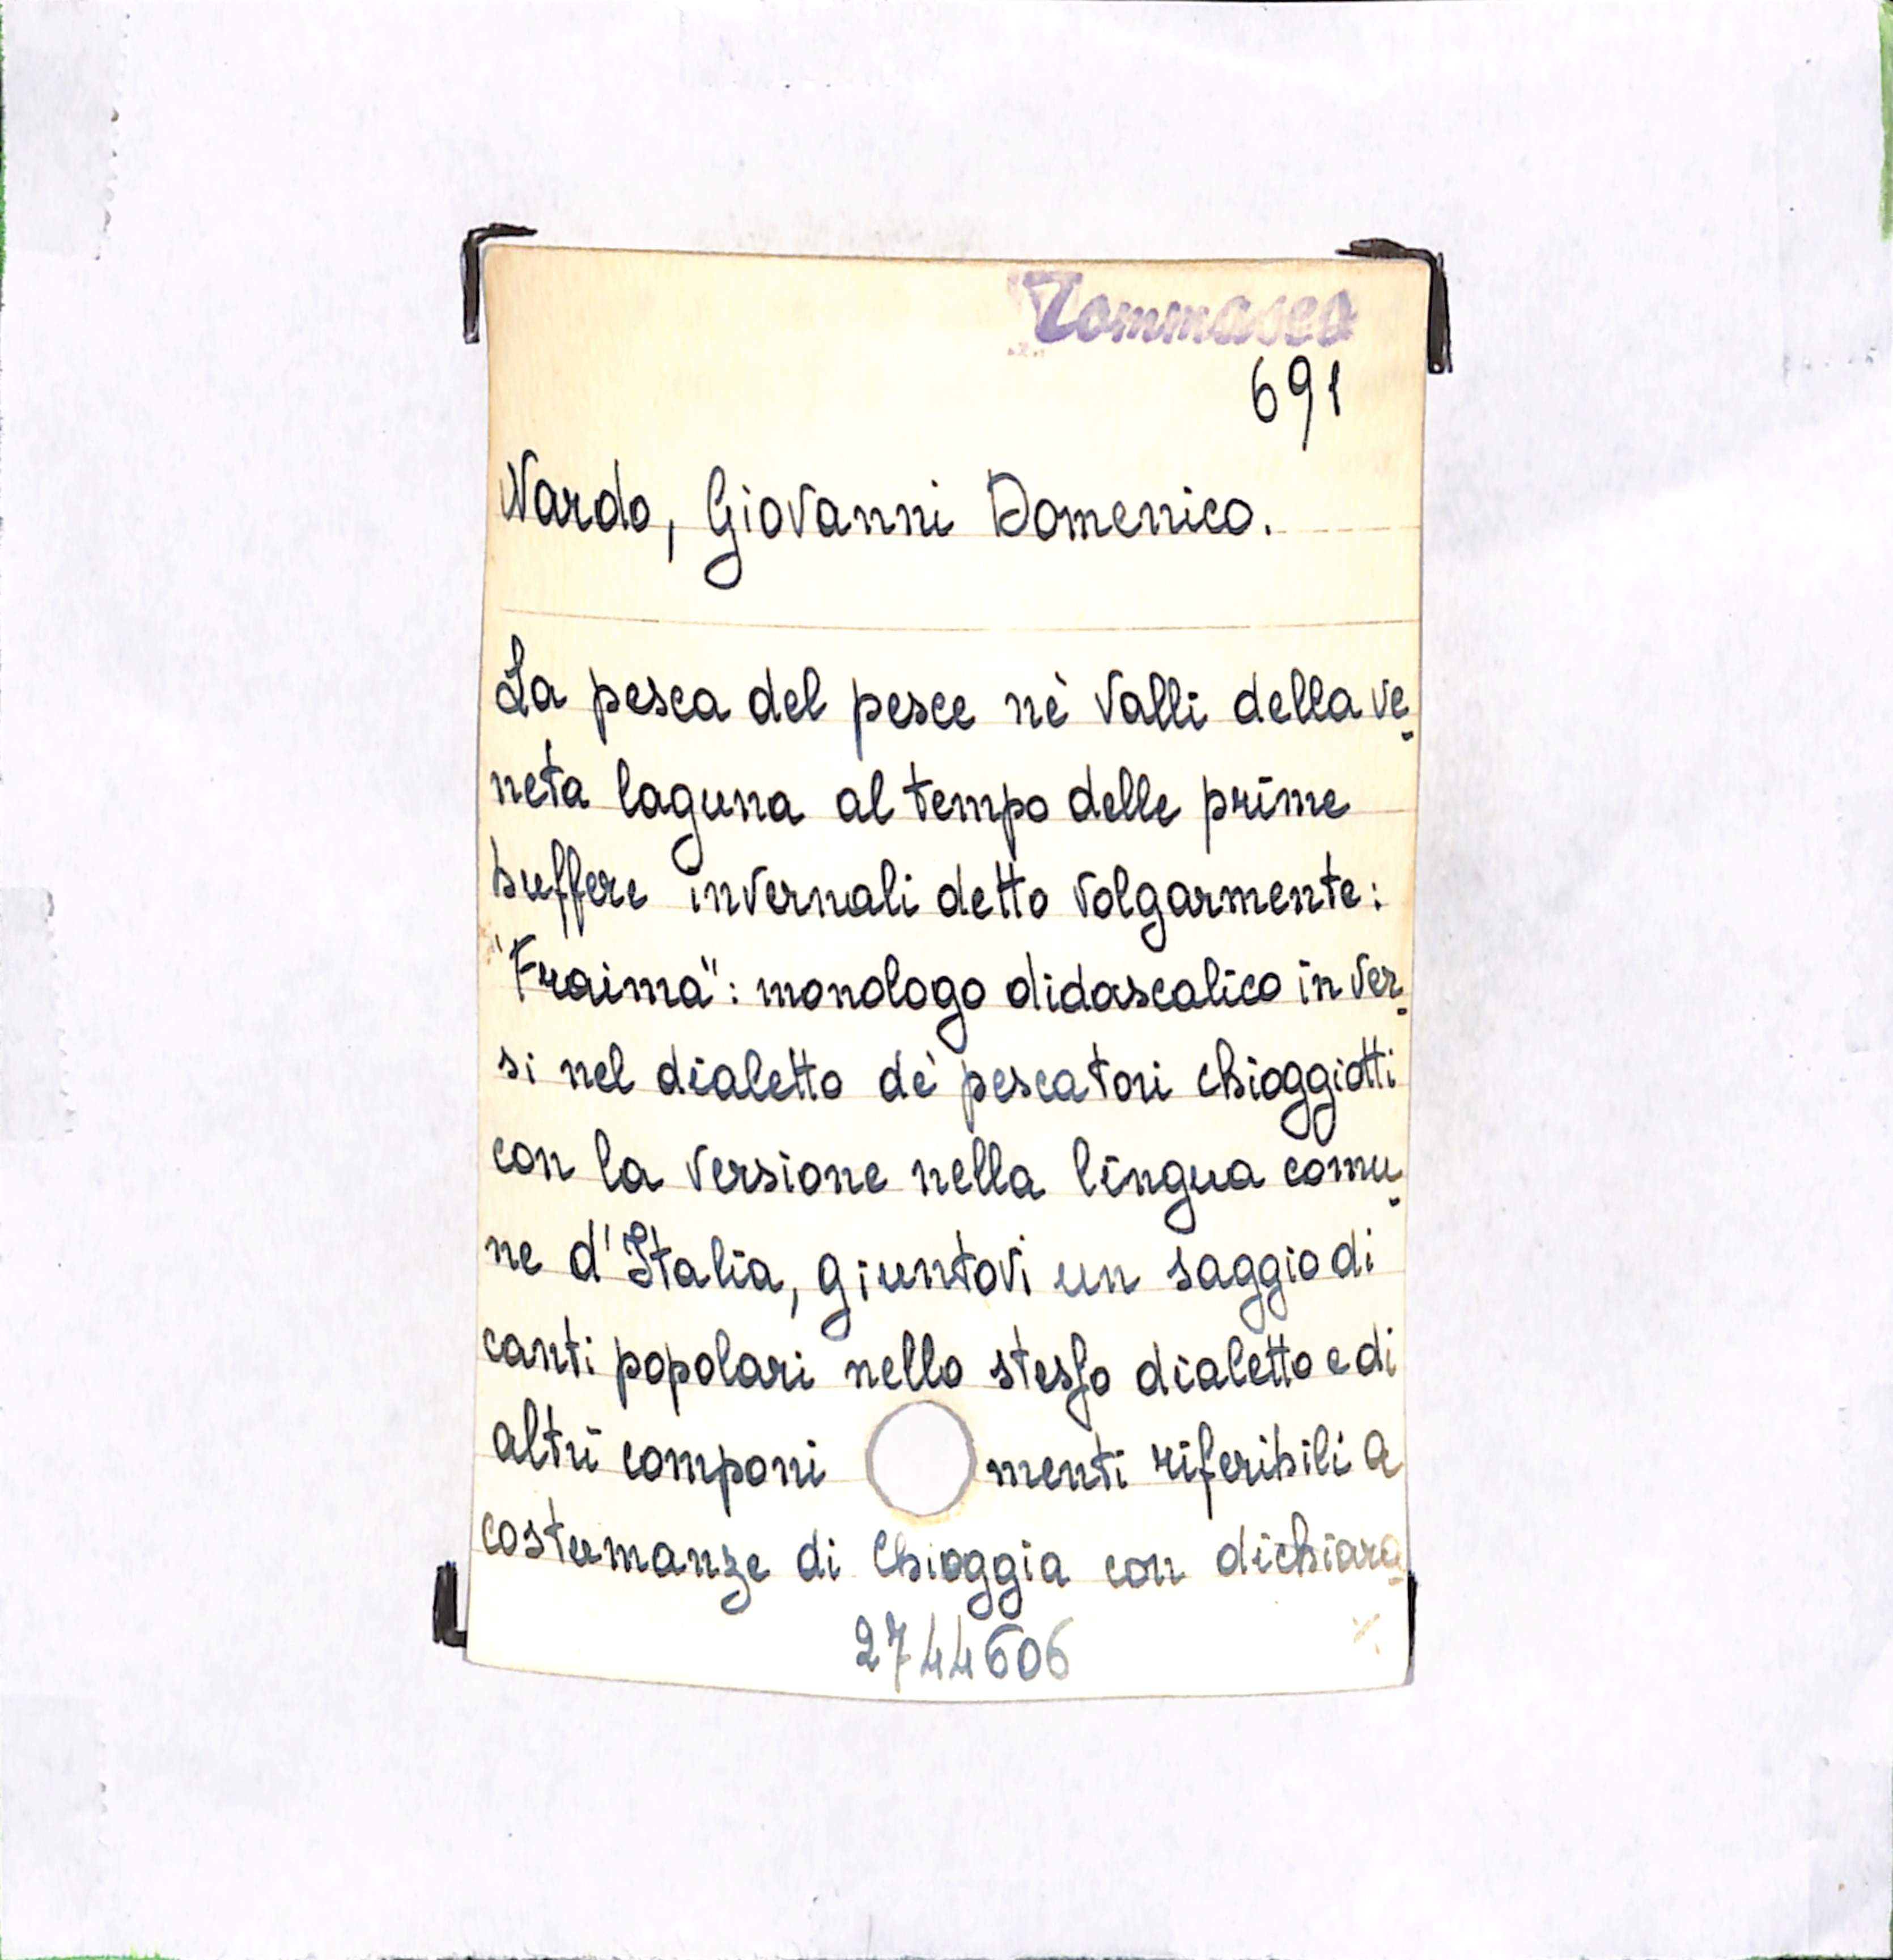 Tommaseo
691
Nardo, Giovanni Domenico.
La pesca del pesce nè valli della ve-
neta laguna al tempo delle prime
buffere invernali detto volgarmente:
"Fraima": monologo didascalico in ver-
si nel dialetto dè pescatori chioggiotti
con la versione nella lingua comu-
ne d'Italia, giuntovi un saggio di
canti popolari nello stesso dialetto e di
altri componi menti riferibili a
costumanze di Chioggia con dichiara-
2744606